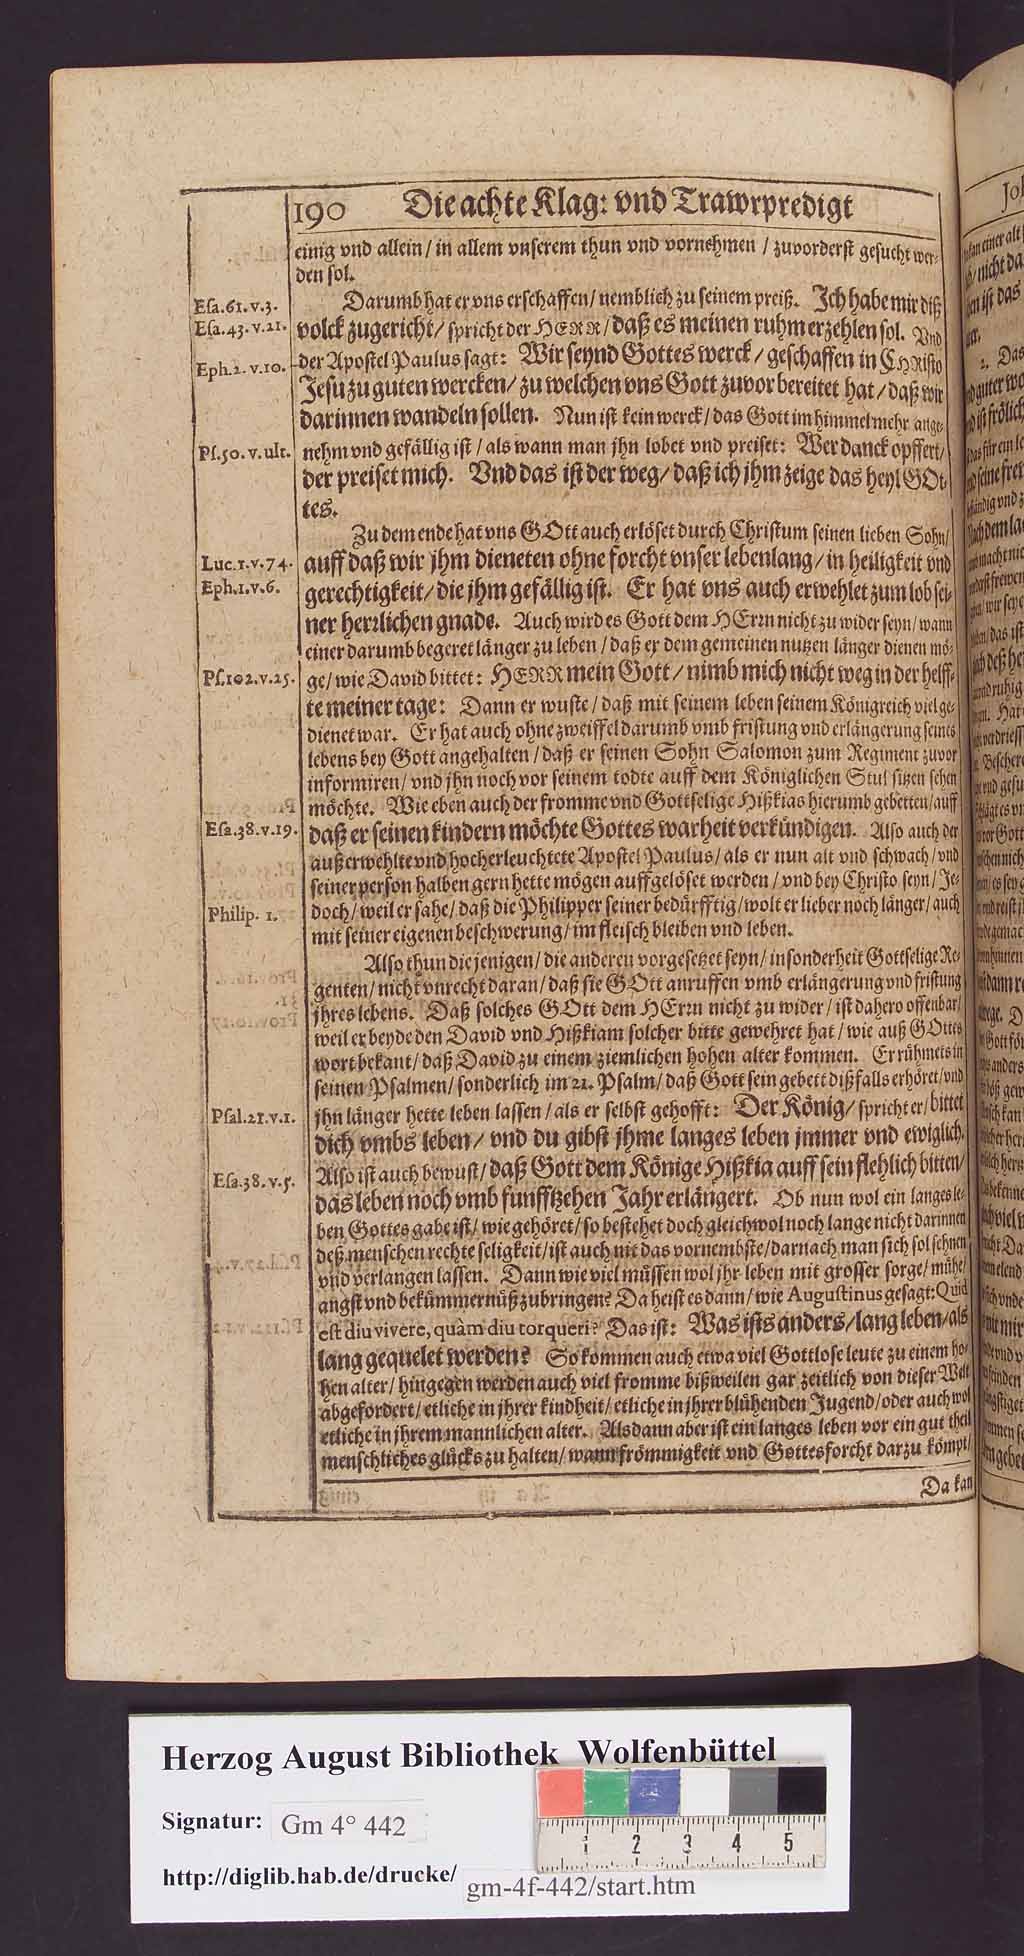 190 Die achte Klag: vnd Trawrpredigt
einig vnd allein / in allem vnserem thun vnd vornehmen / zuvorderst gesucht wer-
den sol.
Esa. 61. v. 3. Darumb hat er vns erschaffen / nemblich zu seinem preiß. Ich habe mir diß
Esa. 43. v. 21. volck zugericht / spricht der HERR / daß es meinen ruhm erzehlen sol. Vnd
Eph. 2. v. 10. der Apostel Paulus sagt: Wir seynd Gottes werck / geschaffen in CHRisto
Jesu zu guten wercken / zu welchen vns Gott zuvor bereitet hat / daß wir
darinnen wandeln sollen. Nun ist kein werck / das Gott im himmel mehr ange-
Ps. 50. v. ult. nehm vnd gefällig ist / als wann man jhn lobet vnd preiset: Wer danck opffert /
der preiset mich. Vnd das ist der weg / daß ich jhm zeige das heyl GOt-
tes.
Zu dem ende hat vns GOtt auch erlöset durch Christum seinen lieben Sohn /
Luc. 1. v. 74. auff daß wir jhm dieneten ohne forcht vnser lebenlang / in heiligkeit vnd
Eph. 1. v. 6. gerechtigkeit / die jhm gefällig ist. Er hat vns auch erwehlet zum lob sei-
ner herrlichen gnade. Auch wird es Gott dem HErrn nicht zu wider seyn / wann
einer darumb begeret länger zu leben / daß er dem gemeinen nutzen länger dienen mö-
Ps. 102. v. 25. ge / wie David bittet: HERR mein Gott / nimb mich nicht weg in der helff-
te meiner tage: Dann er wuste / daß mit seinem leben seinem Königreich viel ge-
dienet war. Er hat auch ohne zweiffel darumb vmb fristung vnd erlängerung seines
lebens bey Gott angehalten / daß er seinen Sohn Salomon zum Regiment zuvor
informiren / vnd jhn noch vor seinem todte auff dem Königlichen Stul sitzen sehen
möchte. Wie eben auch der fromme vnd Gottselige Hißkias hierumb gebetten / auff
Esa. 38. v. 19. daß er seinen kindern möchte Gottes warheit verkündigen. Also auch der
außerwehlte vnd hocherleuchtete Apostel Paulus / als er nun alt vnd schwach / vnd
seiner person halben gern hette mögen auffgelöset werden / vnd bey Christo seyn / Je-
Philip. 1. doch / weil er sahe / daß die Philipper seiner bedürfftig / wolt er lieber noch länger / auch
mit seiner eigenen beschwerung / im fleisch bleiben vnd leben.
Also thun die jenigen / die anderen vorgesetzet seyn / insonderheit Gottselige Re-
genten / nicht vnrecht daran / daß sie GOtt anruffen vmb erlängerung vnd fristung
jhres lebens. Daß solches GOtt dem HErrn nicht zu wider / ist dahero offenbar /
weil er beyde den David vnd Hißkiam solcher bitte gewehret hat / wie auß GOttes
wort bekant / daß David zu einem ziemlichen hohen alter kommen. Er rühmets in
seinen Psalmen / sonderlich im 21. Psalm / daß Gott sein gebett dißfalls erhöret / vnd
Psal. 21. v. 1. jhn länger hette leben lassen / als er selbst gehofft: Der König / spricht er / bittet
dich vmbs leben / vnd du gibst jhme langes leben jmmer vnd ewiglich.
Esa. 38. v. 5. Also ist auch bewust / daß Gott dem Könige Hißkia auff sein flehlich bitten /
das leben noch vmb funfftzehen Jahr erlängert. Ob nun wol ein langes le-
ben Gottes gabe ist / wie gehöret / so bestehet doch gleichwol noch lange nicht darinnen
deß menschen rechte seligkeit / ist auch nit das vornembste / darnach man sich sol sehnen
vnd verlangen lassen. Dann wie viel müssen wol jhr leben mit grosser sorge / mühe /
angst vnd bekümmernüß zubringen? Da heist es dann / wie Augustinus gesagt: Quid
est diu vivere, quàm diu torqueri? Das ist: Was ists anders / lang leben / als
lang gequelet werden? So kommen auch etwa viel Gottlose leute zu einem ho-
hen alter / hingegen werden auch viel fromme bißweilen gar zeitlich von dieser Welt
abgefordert / etliche in jhrer kindheit / etliche in jhrer blühenden Jugend / oder auch wol
etliche in jhrem mannlichen alter. Alsdann aber ist ein langes leben vor ein gut theil
menschliches glücks zu halten / wann frömmigkeit vnd Gottesforcht darzu kömpt /
Da kan
Herzog August Bibliothek Wolfenbüttel
Signatur: Gm 4° 442
http://diglib.hab.de/drucke/ gm-4f-442/start.htm
1 2 3 4 5